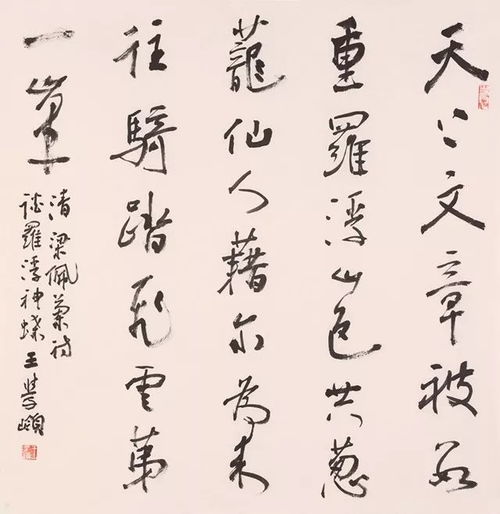 天上文章被數
重羅浮山色共蔥
蘢仙人藉爾為來
往騎踏飛雲第
一峯
清 梁佩蘭詩
詠羅浮神蝶 王學嶺